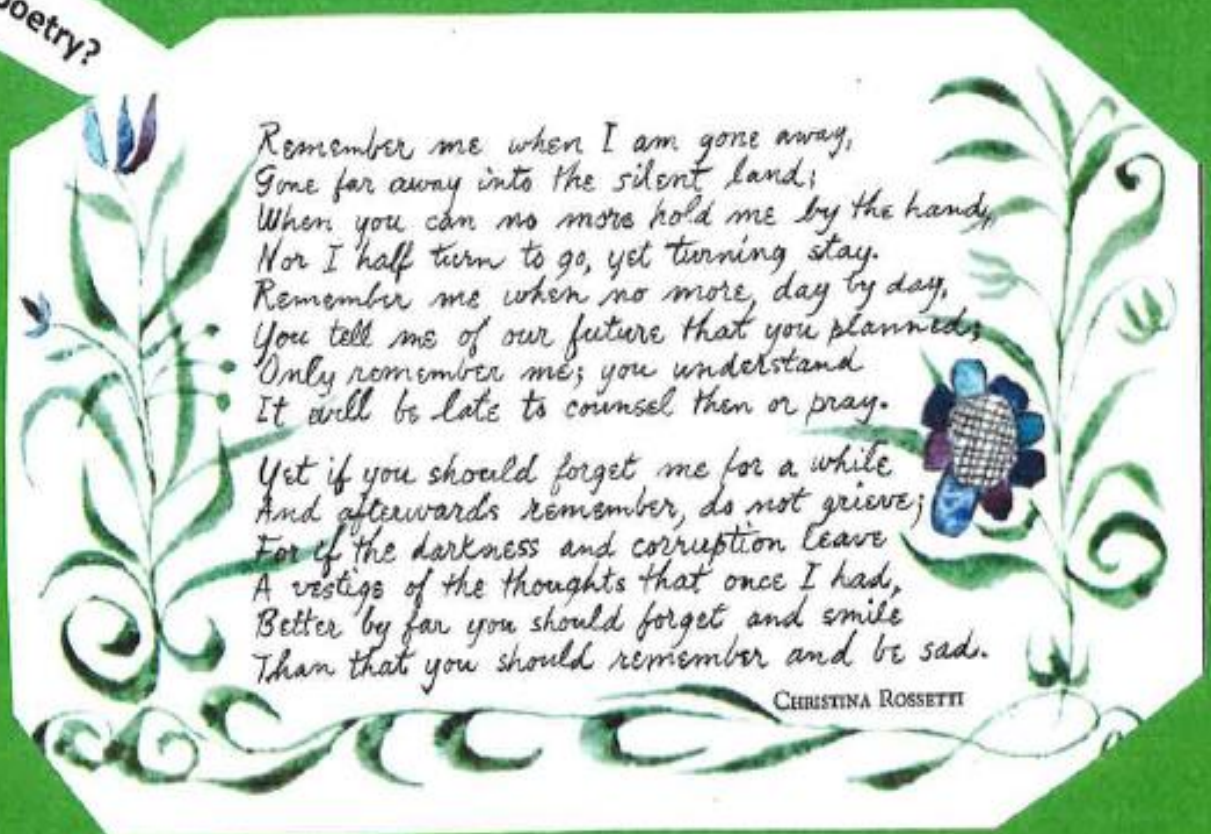 poetry?
Remember me when I am gone away,
Gone far away into the silent land;
When you can no more hold me by the hand,
Nor I half turn to go, yet turning stay.
Remember me when no more, day by day,
You tell me of our future that you planned;
Only remember me; you understand
It will be late to counsel then or pray.
Yet if you should forget me for a while
And afterwards remember, do not grieve;
For if the darkness and corruption leave
A vestige of the thoughts that once I had,
Better by far you should forget and smile
Than that you should remember and be sad.
CHRISTINA ROSSETTI